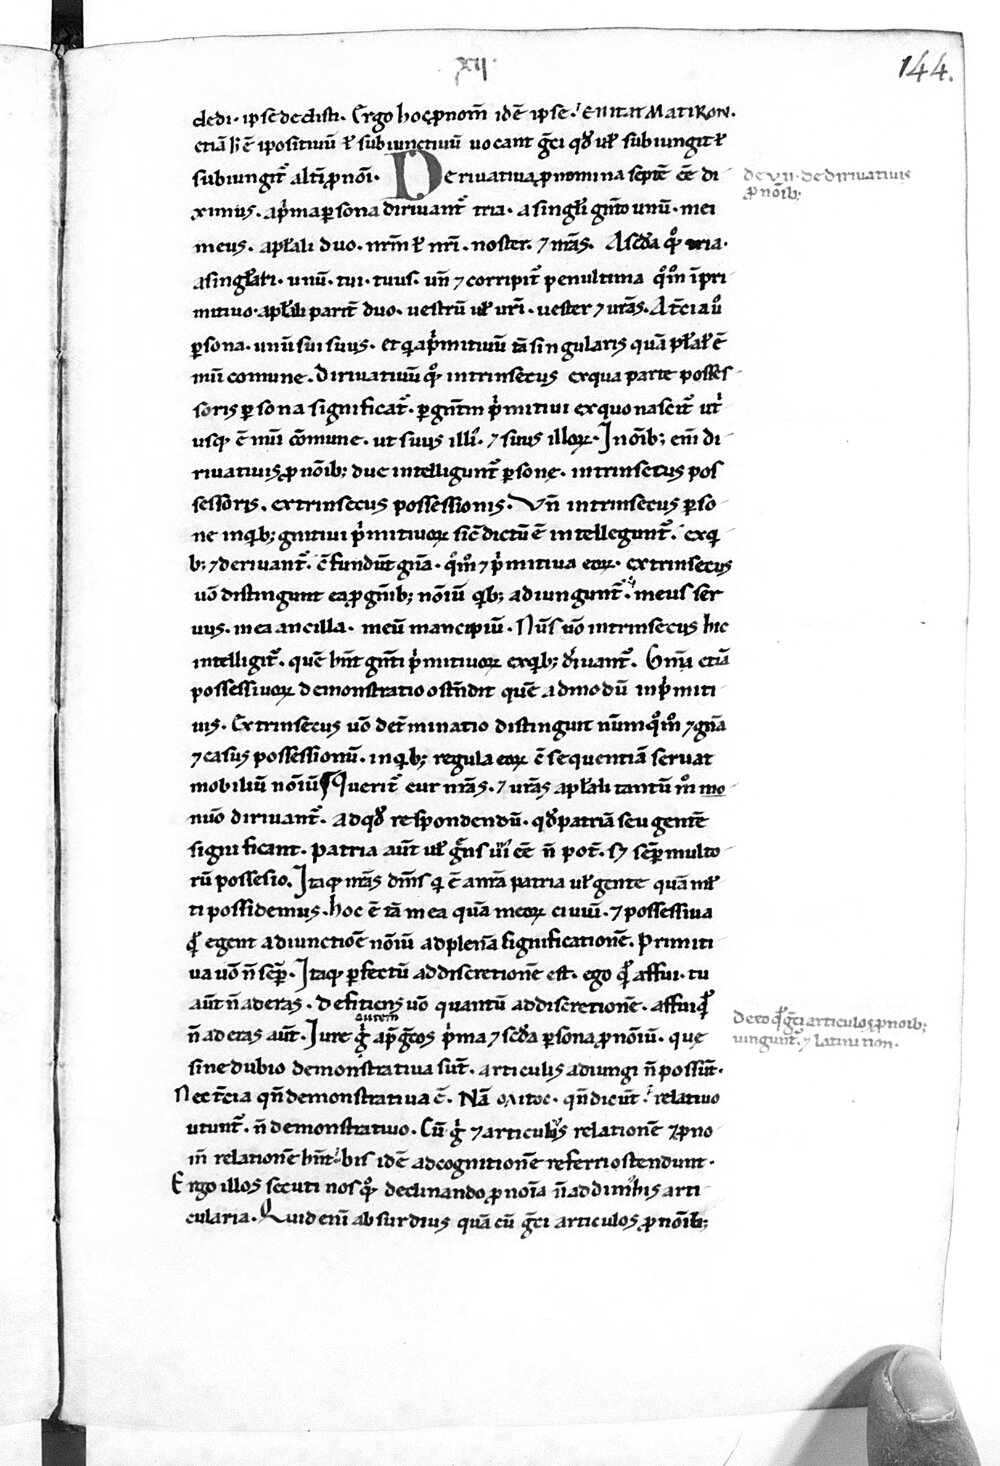 XII·
144.
dedi· ipse dedisti· Ergo hoc ꝓnom̄ idē ipse·
etiā h̄ ē ipositiuū ł subiunctiuū uocant ḡci qđ uł subiungit ł
subiungit᷑ alt̄i ꝓnōi· Deriuatiua ꝓnomina septē ēē di
de VII· de diriuatiuis
ꝓnōib;
ximus· a pͥma ꝑsona diriuant᷑ tria· a singłi gn̄to unū· mei
meus· a płali duo· nr̄m ł nr̄i· noster· ⁊ nr̄as· A scđa qͦꝫ tria·
a singłari· unū· tui· tuus· un̄ ⁊ corripit᷑ penultima qͦm̄ ī pri
mitiuo· a płali parit᷑ duo· uestrū uł ur̄i· uester ⁊ ur̄as· A t̄cia uͦ
ꝑsona· unū sui suus· et qͥa pͥmitiuū tā singularis quā płał ē
nūi comune· Diriuatiuū qͦꝫ intrinsecus ex qua parte posses
soris ꝑsona significat᷑· ꝑ gn̄tm pͥmitiui ex quo nascit᷑ utͥ
usqꝫ ē nūi cōmune· ut suus illiͥ· ⁊ suus illoꝝ· In oīb; enī di
riuatiuis ꝓnōib; due intelligunt᷑ ꝑsone· intrinsecus pos
sessoris· extrinsecus possessionis· Vn̄ intrinsecus ꝑso
ne in qͥb; gn̄itiui pͥmitiuoꝝ sic̄ dictū ē intelleguntur᷑· ex qͥ
b; ⁊ deriuant᷑· c̄fundūt gn̄a· qͦm̄ ⁊ pͥmitiua eoꝝ· extrinsecus
uō distingunt ea ꝓ gn̄ib; nōiū qͥb; adiungunt᷑· ͛ meus ser
uus· mea ancilla· meū mancipiū· Nūs uō intrinsecus hic
intelligit᷑· quē hn̄t gn̄ti pͥmitiuoꝝ ex qͥb; điuant᷑· Gn̄ū etiā
possessiuoꝝ demonstratio ostn̄dit quē admodū in pͥmiti
uis· Extrinsecus uō det̄minatio distinguit nūm qͦꝫ ⁊ gn̄a
⁊ casus possessionū· in qͥb; regula eoꝝ c̄sequentiā seruat
mobiliū nōiū Querit᷑ cur nr̄as· ⁊ ur̄as a płali tantū nͦ mo
nūo diriuant᷑· ad qđ respondendū· qđ patriā seu gentē
significant· Patria aūt uł gēns uniͥ ēē n̄ pot̄· s; semꝑ multo
rū possesio· Itaqꝫ nr̄as dm̄s qͥ ē a nr̄a patria uł gente quā mł
ti possidemus· hoc ē tā mea quā meoꝝ ciuiū· ⁊ possessiua
qͥ egent adiunctiōe nōiū ad plenā significationē· Primiti
ua uō n̄ semꝑ· Itaqꝫ ꝑfectū ad discretionē est· ego qͥ affui· tu
aūt n̄ aderas· deficiens uō quantū ad discretionē· affui qͥ
de eo qđ ḡci articulos ꝓnoib;
uingunt᷑ ⁊ latini non·
n̄ aderas aūt· Iure gͥ autem ap̄ ḡcos pͥma ⁊ scđa ꝑsona ꝓnōiū· que
sine dubio demonstratiua sūt· articulis adiungi n̄ possūt·
Nec t̄cia qn̄ demonstratiua ē· Nā · qn̄ dicūt· ͥ relatiuo
utunt᷑· n̄ demonstratiuo· Cū gͥ ⁊ articulus relationē ⁊ ꝓno
m̄ relationē hn̄t· bis idē ad cognitionē referri ostendunt·
Ergo illos secuti nos qͦꝫ declinando ꝓnoīa n̄ addimͥ his arti
cularia· Quid enī absurdius quā cū ḡci articulos ꝓnōib;